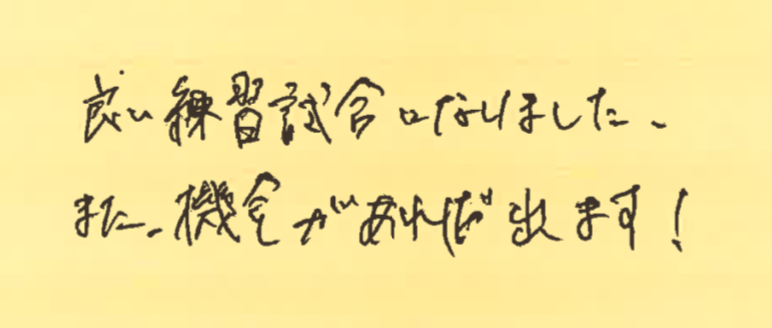 良い練習試合になりました、
また、機会があれば出ます!